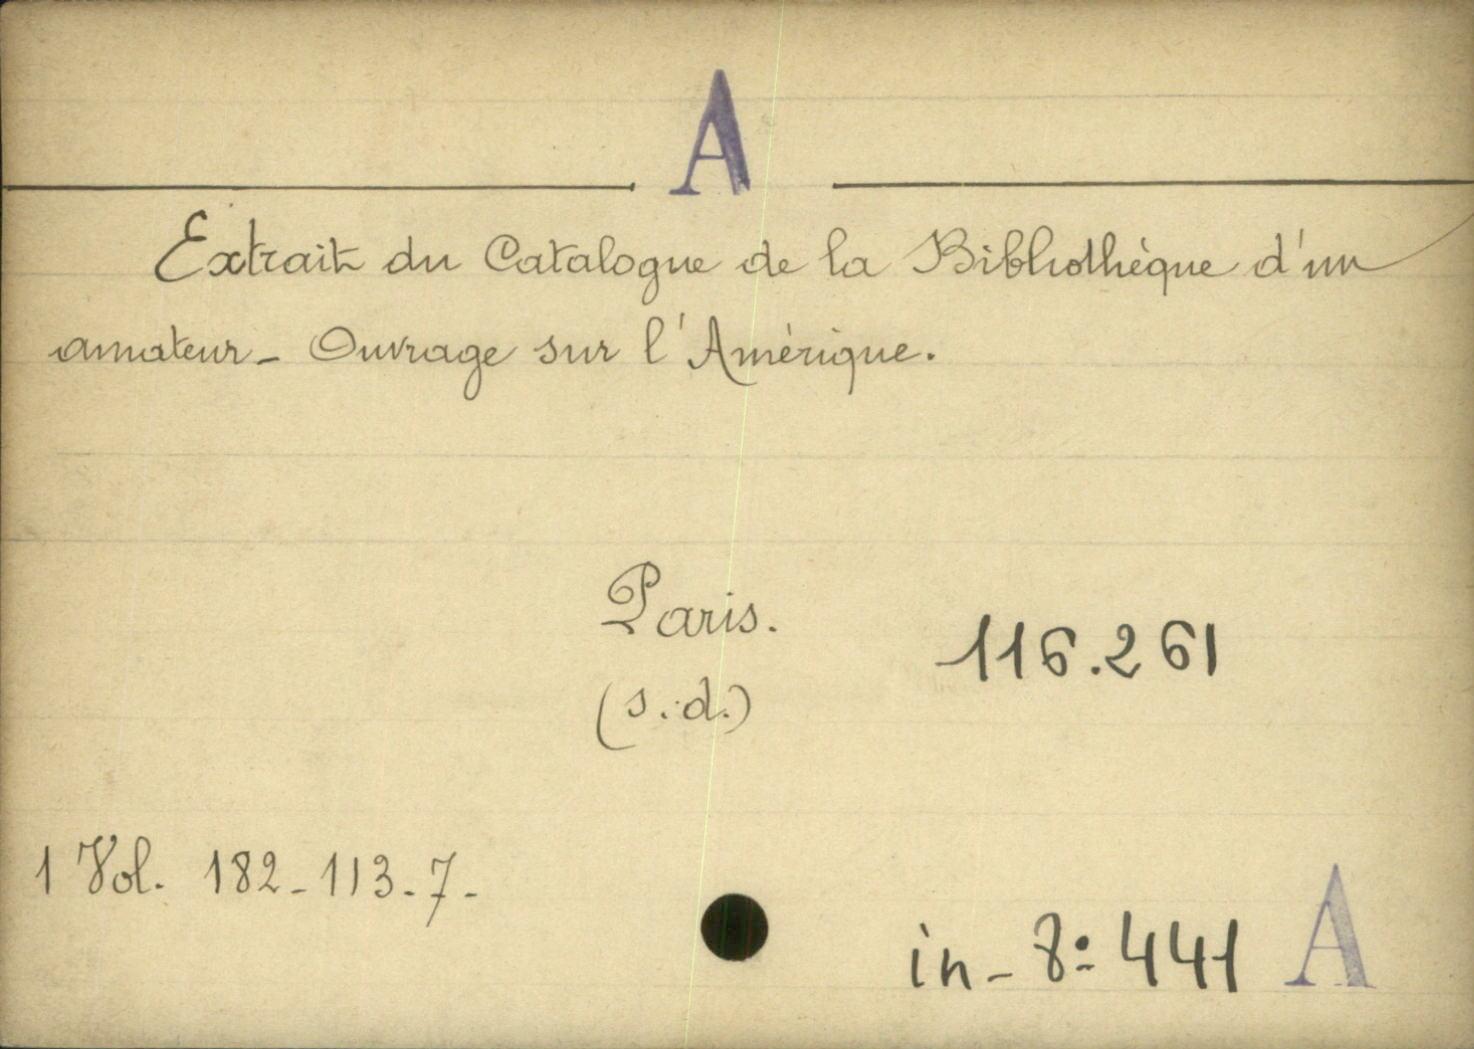 A
Extrait du Catalogue de la Bibliothèque d'un
amateur - Ouvrage sur l'Amérique.
Paris.
116.261
(s.d.)
1 Vol. 182-113-7-
in-8º 441 A